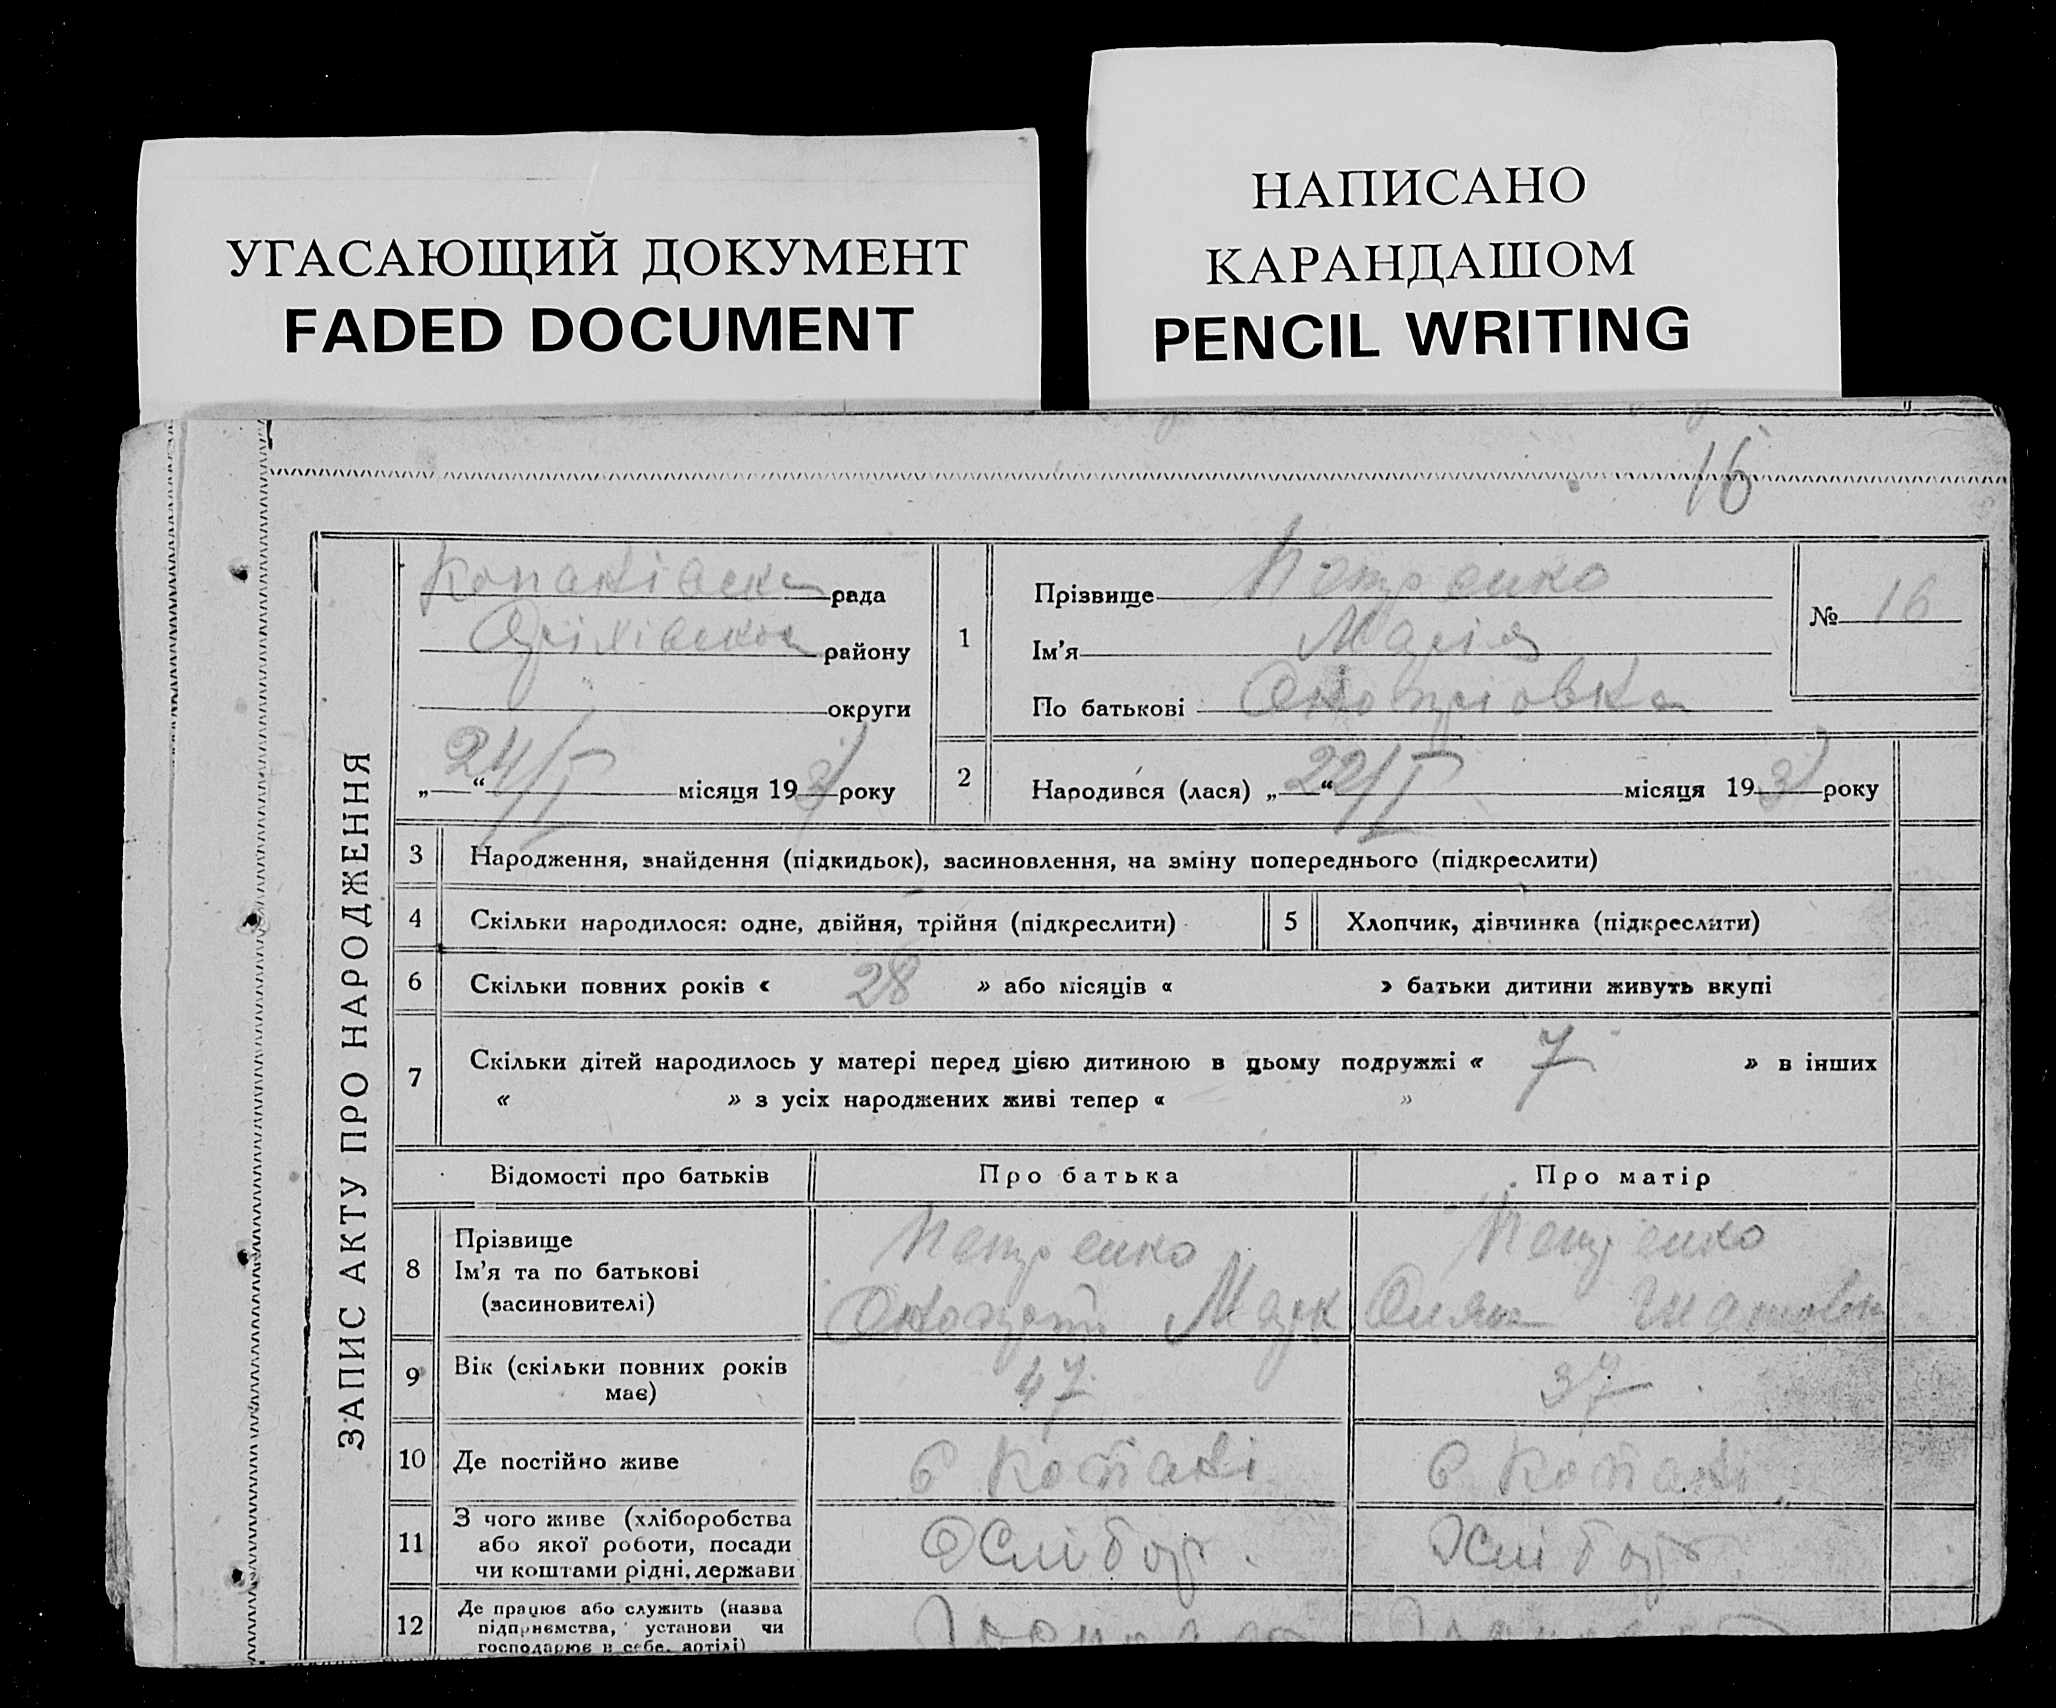 УГАСАЮЩИЙ ДОКУМЕНТ
FADED DOCUMENT
НАПИСАНО
КАРАНДАШОМ
PENCIL WRITING
16
ЗАПИС АКТУ ПРО НАРОДЖЕННЯ
Копанівська рада
Оріхівського району
округи
„24“ I місяця 1931 року
1
Прізвище Петренко
Ім’я Марія
По батькові
№ 16
2 Народився (лася) „22“ I місяця 1931 року
3 Народження, знайдення (підкидьок), засиновлення, на зміну попереднього (підкреслити)
4 Скільки народилося: одне, двійня, трійня (підкреслити)
5 Хлопчик, дівчинка (підкреслити)
6 Скільки повних років « 28 » або місяців « » батьки дитини живуть вкупі
7 Скільки дітей народилось у матері перед цією дитиною в цьому подружжі « 7 » в інших
« » з усіх народжених живі тепер « »
Відомості про батьків Про батька Про матір
8 Прізвище Петренко Петренко
Ім’я та по батькові
(засиновителі) Марк
9 Вік (скільки повних років 47 37
має)
10 Де постійно живе с Копані с Копані
11 З чого живе (хліборобства
або якої роботи, посади Хлібор. Хлібор
чи коштами рідні, держави
12 Де працює або служить (назва
підприємства, установи чи
господарює в себе, артілі)